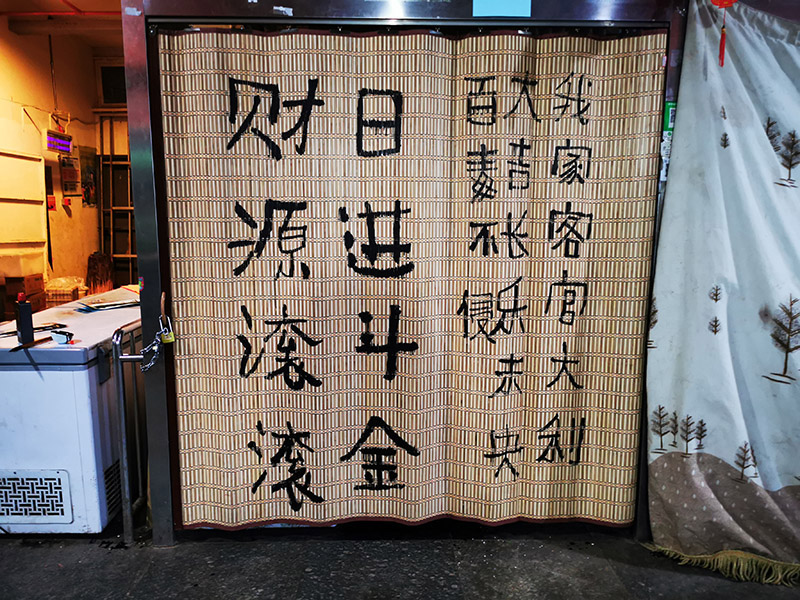 我家客官大利
大吉长乐未央
百毒不侵
日进斗金
财源滚滚